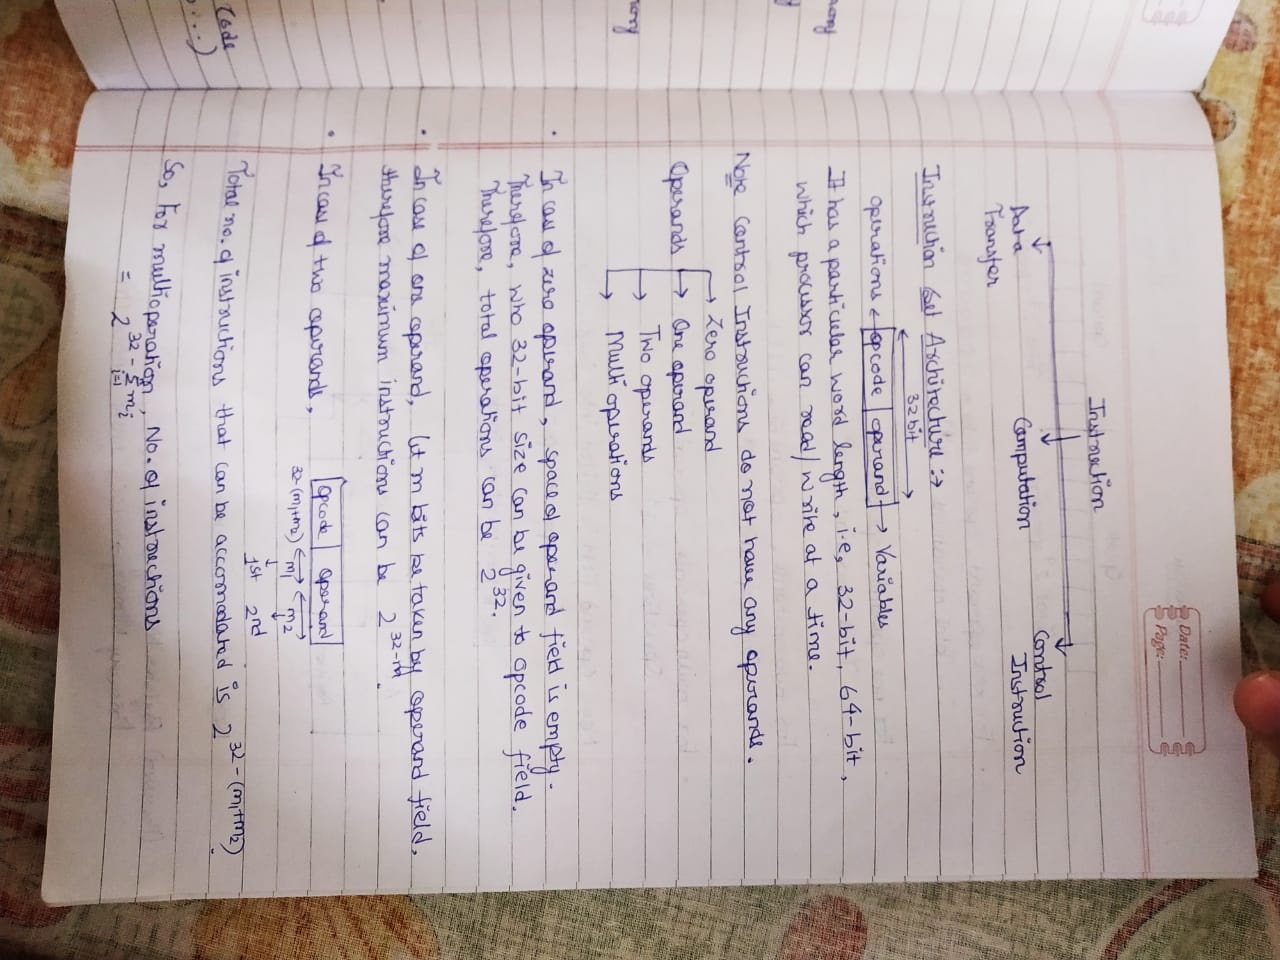 Date:
Page:
Instruction
Data Transfer
Computation
Control Instruction
Instruction Set Architecture :→
32 bit
operations ← opcode | operand → Variables
It has a particular word length, i.e, 32-bit, 64-bit,
which processor can read/write at a time.
Note Control Instructions do not have any operands.
Zero operand
Operands → One operand
Two operands
Multi operations
• In case of zero operand, space of operand field is empty.
Therefore, who 32-bit size can be given to opcode field.
Therefore, total operations can be 2^32.
• In case of one operand, let m bits be taken by operand field,
therefore maximum instructions can be 2^32-m.
• In case of two operands, opcode | operand
32-(m1+m2) ↔ m1 ↔ m2
1st 2nd
Total no. of instructions that can be accomodated is 2^32-(m1+m2).
So, For multioperation, No. of instructions
= 2^32-Σ i=1 mi
Code
...)
mory
mory